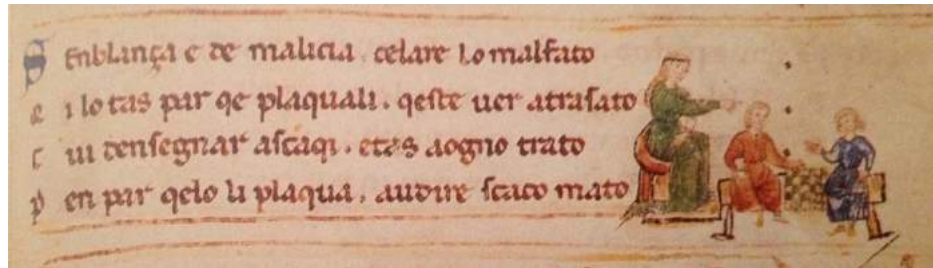 Senblança e de malicia . celare lo malfato
e i lo tas par qe plaquali . qeste uer atrasato
c ui densegnar ascaqi . etas aogno trato
p en par qelo li plaqua . audire scaco mato